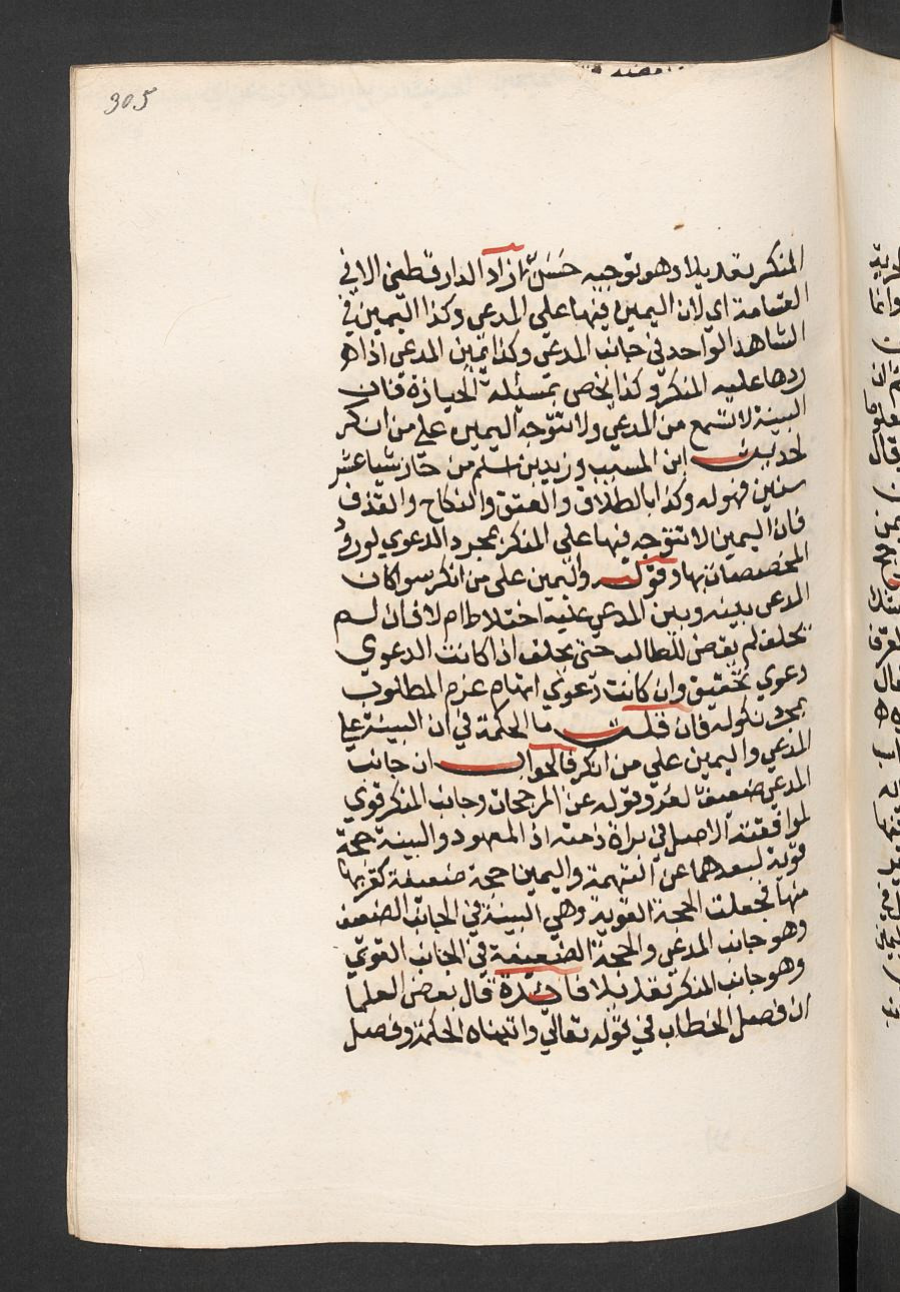 305
المنكر بقد يلا وهو توجيه حسن زاد الدار قطني الا في
القسامة اي لان اليمين فيها على المدعي وكذا اليمين في
الشاهد الواحد في جانب المدعي وكذا يمين المدعي اذا
ردها عليه المنكر وكذا تخص بمسئلة الحيازة فان
البينة لا تسمع من المدعي ولا تتوجه اليمين على من انكر
لحديث ابن المسيب وزيد بن اسلم من حاز شيا عشر
سنين فهو له وكذا بالطلاق والعتق والنكاح والقذف
فان اليمين لا تتوجه فيها على المنكر بمجرد الدعوي لورود
المخصصات بها وقوله واليمين على من انكر سوا كان
المدعى بينه وبين المدعي عليه اختلاط ام لا فان لم
يحلف لم يقض للطالب حتى يحلف اذا كانت الدعوي
دعوي تحقيق وان كانت دعوي اتهام غرم المطلوب
بمجرد نكوله فان قلت ما الحكمة في ان البينة علي
المدعي واليمين علي من انكر فالجواب ان جانب
المدعي ضعيف لعرو قوله عن المرجحات وجانب المنكر قوي
لموافقته الاصل في براة ذمته اذ المعهود والبينة حجة
قوية لبعدها عن التهمة واليمين حجة ضعيفة لقربها
منها فجعلت الحجة القوية وهي البينة في الجانب الضعيف
وهو جانب المدعي والحجة الضعيفة في الجانب القوي
وهو جانب المنكر تعديلا فائدة قال بعض العلما
ان فصل الخطاب في قوله تعالي واتيناه الحكمة وفصل